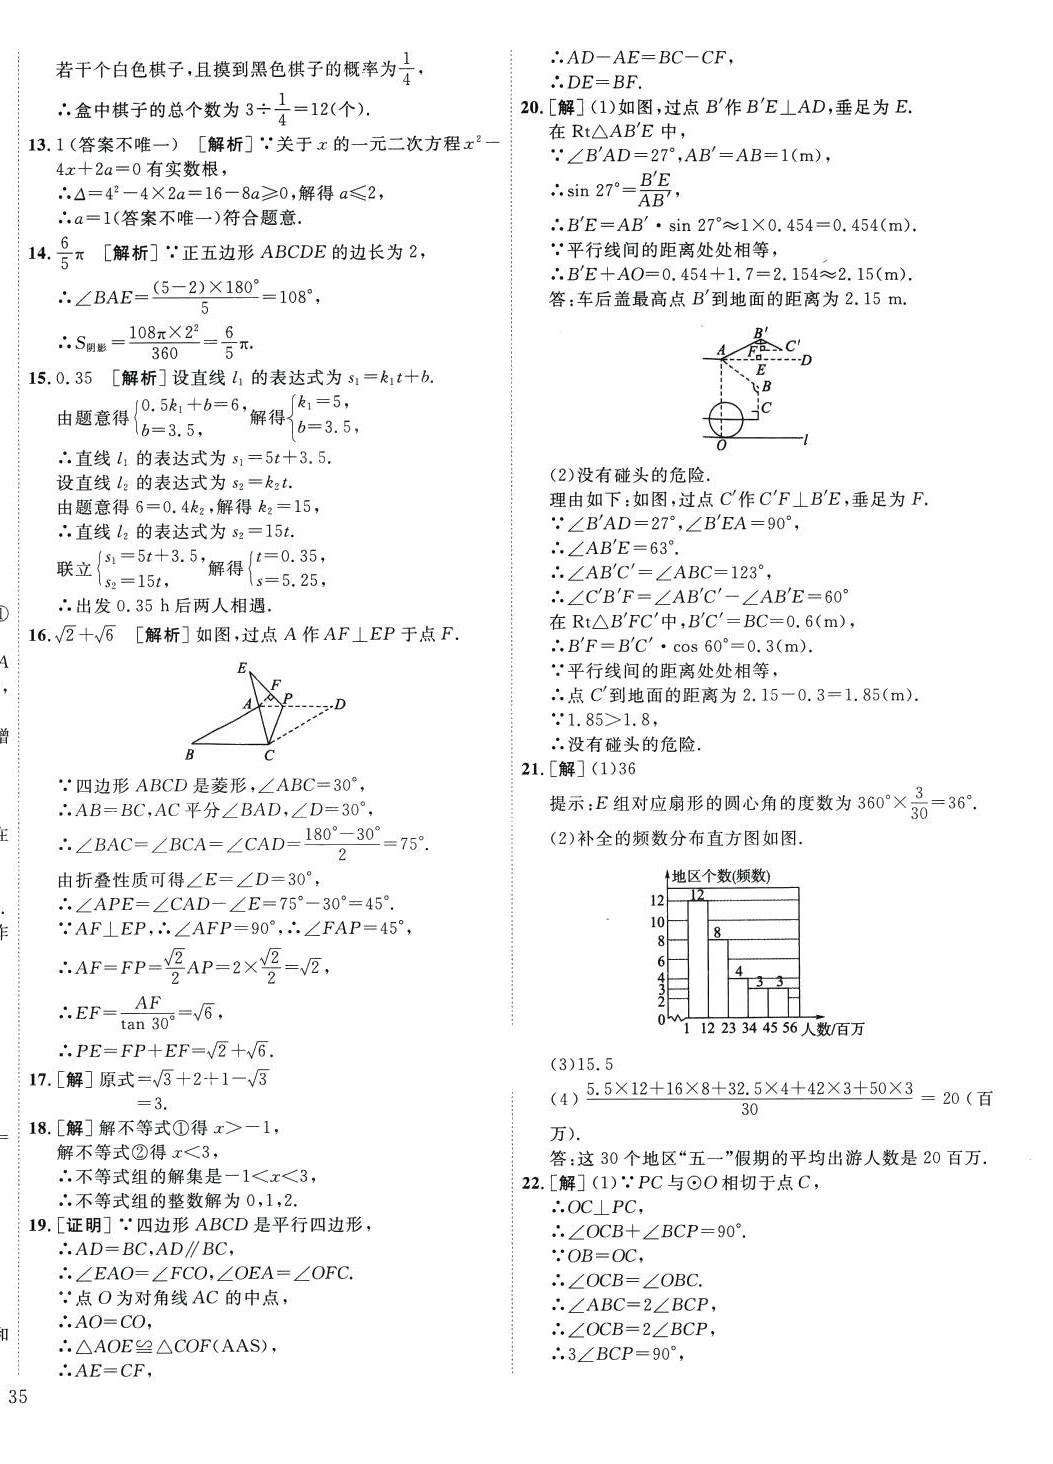 若干个白色棋子,且摸到黑色棋子的概率为1/4,
∴盒中棋子的总个数为 3÷1/4=12(个).
13. 1(答案不唯一) [解析]∵关于 x 的一元二次方程x²-
4x+2a=0 有实数根,
∴Δ=4²-4×2a=16-8a≥0,解得 a≤2,
∴a=1(答案不唯一)符合题意.
14. 6/5π [解析]∵正五边形 ABCDE 的边长为 2,
∴∠BAE=(5-2)×180°/5=108°,
∴S阴影=108π×2²/360=6/5π.
15. 0.35 [解析]设直线 l₁ 的表达式为 s₁=k₁t+b.
由题意得{0.5k₁+b=6, b=3.5, 解得{k₁=5, b=3.5,
∴直线 l₁ 的表达式为 s₁=5t+3.5.
设直线 l₂ 的表达式为 s₂=k₂t.
由题意得 6=0.4k₂,解得 k₂=15,
∴直线 l₂ 的表达式为 s₂=15t.
联立{s₁=5t+3.5, s₂=15t, 解得{t=0.35, s=5.25,
∴出发 0.35 h 后两人相遇.
16. √2+√6 [解析]如图,过点 A 作 AF⊥EP 于点 F.
E
F
A P D
B C
∵四边形 ABCD 是菱形,∠ABC=30°,
∴AB=BC,AC 平分∠BAD,∠D=30°,
∴∠BAC=∠BCA=∠CAD=180°-30°/2=75°.
由折叠性质可得∠E=∠D=30°,
∴∠APE=∠CAD-∠E=75°-30°=45°.
∵AF⊥EP,∴∠AFP=90°,∴∠FAP=45°,
∴AF=FP=√2/2AP=2×√2/2=√2,
∴EF=AF/tan 30°=√6,
∴PE=FP+EF=√2+√6.
17. [解]原式=√3+2+1-√3
=3.
18. [解]解不等式①得 x>-1,
解不等式②得 x<3,
∴不等式组的解集是-1<x<3,
∴不等式组的整数解为 0,1,2.
19. [证明]∵四边形 ABCD 是平行四边形,
∴AD=BC,AD∥BC,
∴∠EAO=∠FCO,∠OEA=∠OFC.
∵点 O 为对角线 AC 的中点,
∴AO=CO,
∴△AOE≌△COF(AAS),
∴AE=CF,
35
∴AD-AE=BC-CF,
∴DE=BF.
20. [解](1)如图,过点 B′作 B′E⊥AD,垂足为 E.
在 Rt△AB′E 中,
∵∠B′AD=27°,AB′=AB=1(m),
∴sin 27°=B′E/AB′,
∴B′E=AB′·sin 27°≈1×0.454=0.454(m).
∵平行线间的距离处处相等,
∴B′E+AO=0.454+1.7=2.154≈2.15(m).
答:车后盖最高点 B′到地面的距离为 2.15 m.
B′
A F C′
E D
B
C
O l
(2)没有碰头的危险.
理由如下:如图,过点 C′作 C′F⊥B′E,垂足为 F.
∵∠B′AD=27°,∠B′EA=90°,
∴∠AB′E=63°.
∴∠AB′C′=∠ABC=123°,
∴∠C′B′F=∠AB′C′-∠AB′E=60°
在 Rt△B′FC′中,B′C′=BC=0.6(m),
∴B′F=B′C′·cos 60°=0.3(m).
∵平行线间的距离处处相等,
∴点 C′到地面的距离为 2.15-0.3=1.85(m).
∵1.85>1.8,
∴没有碰头的危险.
21. [解](1)36
提示:E 组对应扇形的圆心角的度数为 360°×3/30=36°.
(2)补全的频数分布直方图如图.
地区个数(频数)
12 12
10
8 8
6
4 4
3 3 3
2
0 1 12 23 34 45 56 人数/百万
(3)15.5
(4)5.5×12+16×8+32.5×4+42×3+50×3/30=20(百
万).
答:这 30 个地区“五一”假期的平均出游人数是 20 百万.
22. [解](1)∵PC 与⊙O 相切于点 C,
∴OC⊥PC,
∴∠OCB+∠BCP=90°.
∵OB=OC,
∴∠OCB=∠OBC.
∴∠ABC=2∠BCP,
∴∠OCB=2∠BCP,
∴3∠BCP=90°,